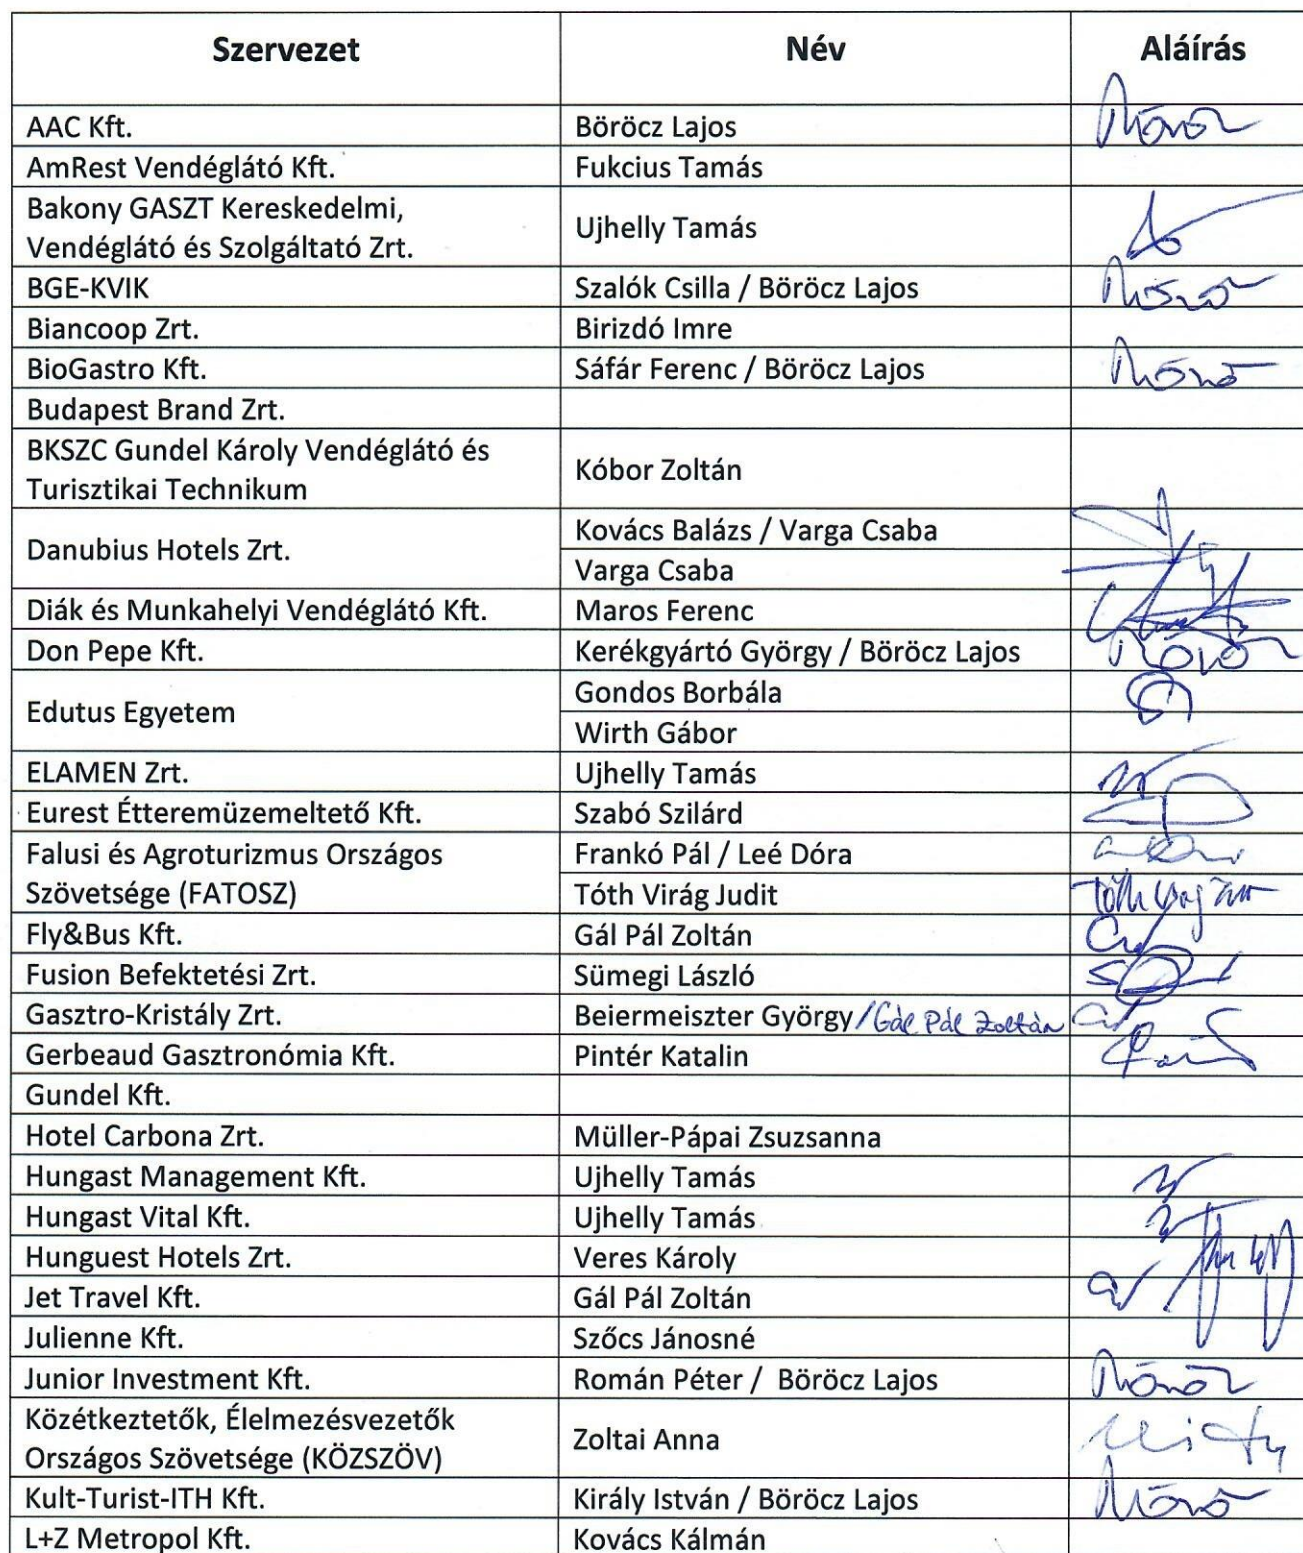 Szervezet Név Aláírás
AAC Kft. Böröcz Lajos
AmRest Vendéglátó Kft. Fukcius Tamás
Bakony GASZT Kereskedelmi,
Vendéglátó és Szolgáltató Zrt. Ujhelly Tamás
BGE-KVIK Szalók Csilla / Böröcz Lajos
Biancoop Zrt. Birizdó Imre
BioGastro Kft. Sáfár Ferenc / Böröcz Lajos
Budapest Brand Zrt.
BKSZC Gundel Károly Vendéglátó és
Turisztikai Technikum Kóbor Zoltán
Danubius Hotels Zrt. Kovács Balázs / Varga Csaba
Varga Csaba
Diák és Munkahelyi Vendéglátó Kft. Maros Ferenc
Don Pepe Kft. Kerékgyártó György / Böröcz Lajos
Edutus Egyetem Gondos Borbála
Wirth Gábor
ELAMEN Zrt. Ujhelly Tamás
Eurest Étteremüzemeltető Kft. Szabó Szilárd
Falusi és Agroturizmus Országos Frankó Pál / Leé Dóra
Szövetsége (FATOSZ) Tóth Virág Judit Tóth Virág
Fly&Bus Kft. Gál Pál Zoltán
Fusion Befektetési Zrt. Sümegi László
Gasztro-Kristály Zrt. Beiermeiszter György /Gál Pál Zoltán
Gerbeaud Gasztronómia Kft. Pintér Katalin
Gundel Kft.
Hotel Carbona Zrt. Müller-Pápai Zsuzsanna
Hungast Management Kft. Ujhelly Tamás
Hungast Vital Kft. Ujhelly Tamás
Hunguest Hotels Zrt. Veres Károly
Jet Travel Kft. Gál Pál Zoltán
Julienne Kft. Szőcs Jánosné
Junior Investment Kft. Román Péter / Böröcz Lajos
Közétkeztetők, Élelmezésvezetők
Országos Szövetsége (KÖZSZÖV) Zoltai Anna
Kult-Turist-ITH Kft. Király István / Böröcz Lajos
L+Z Metropol Kft. Kovács Kálmán